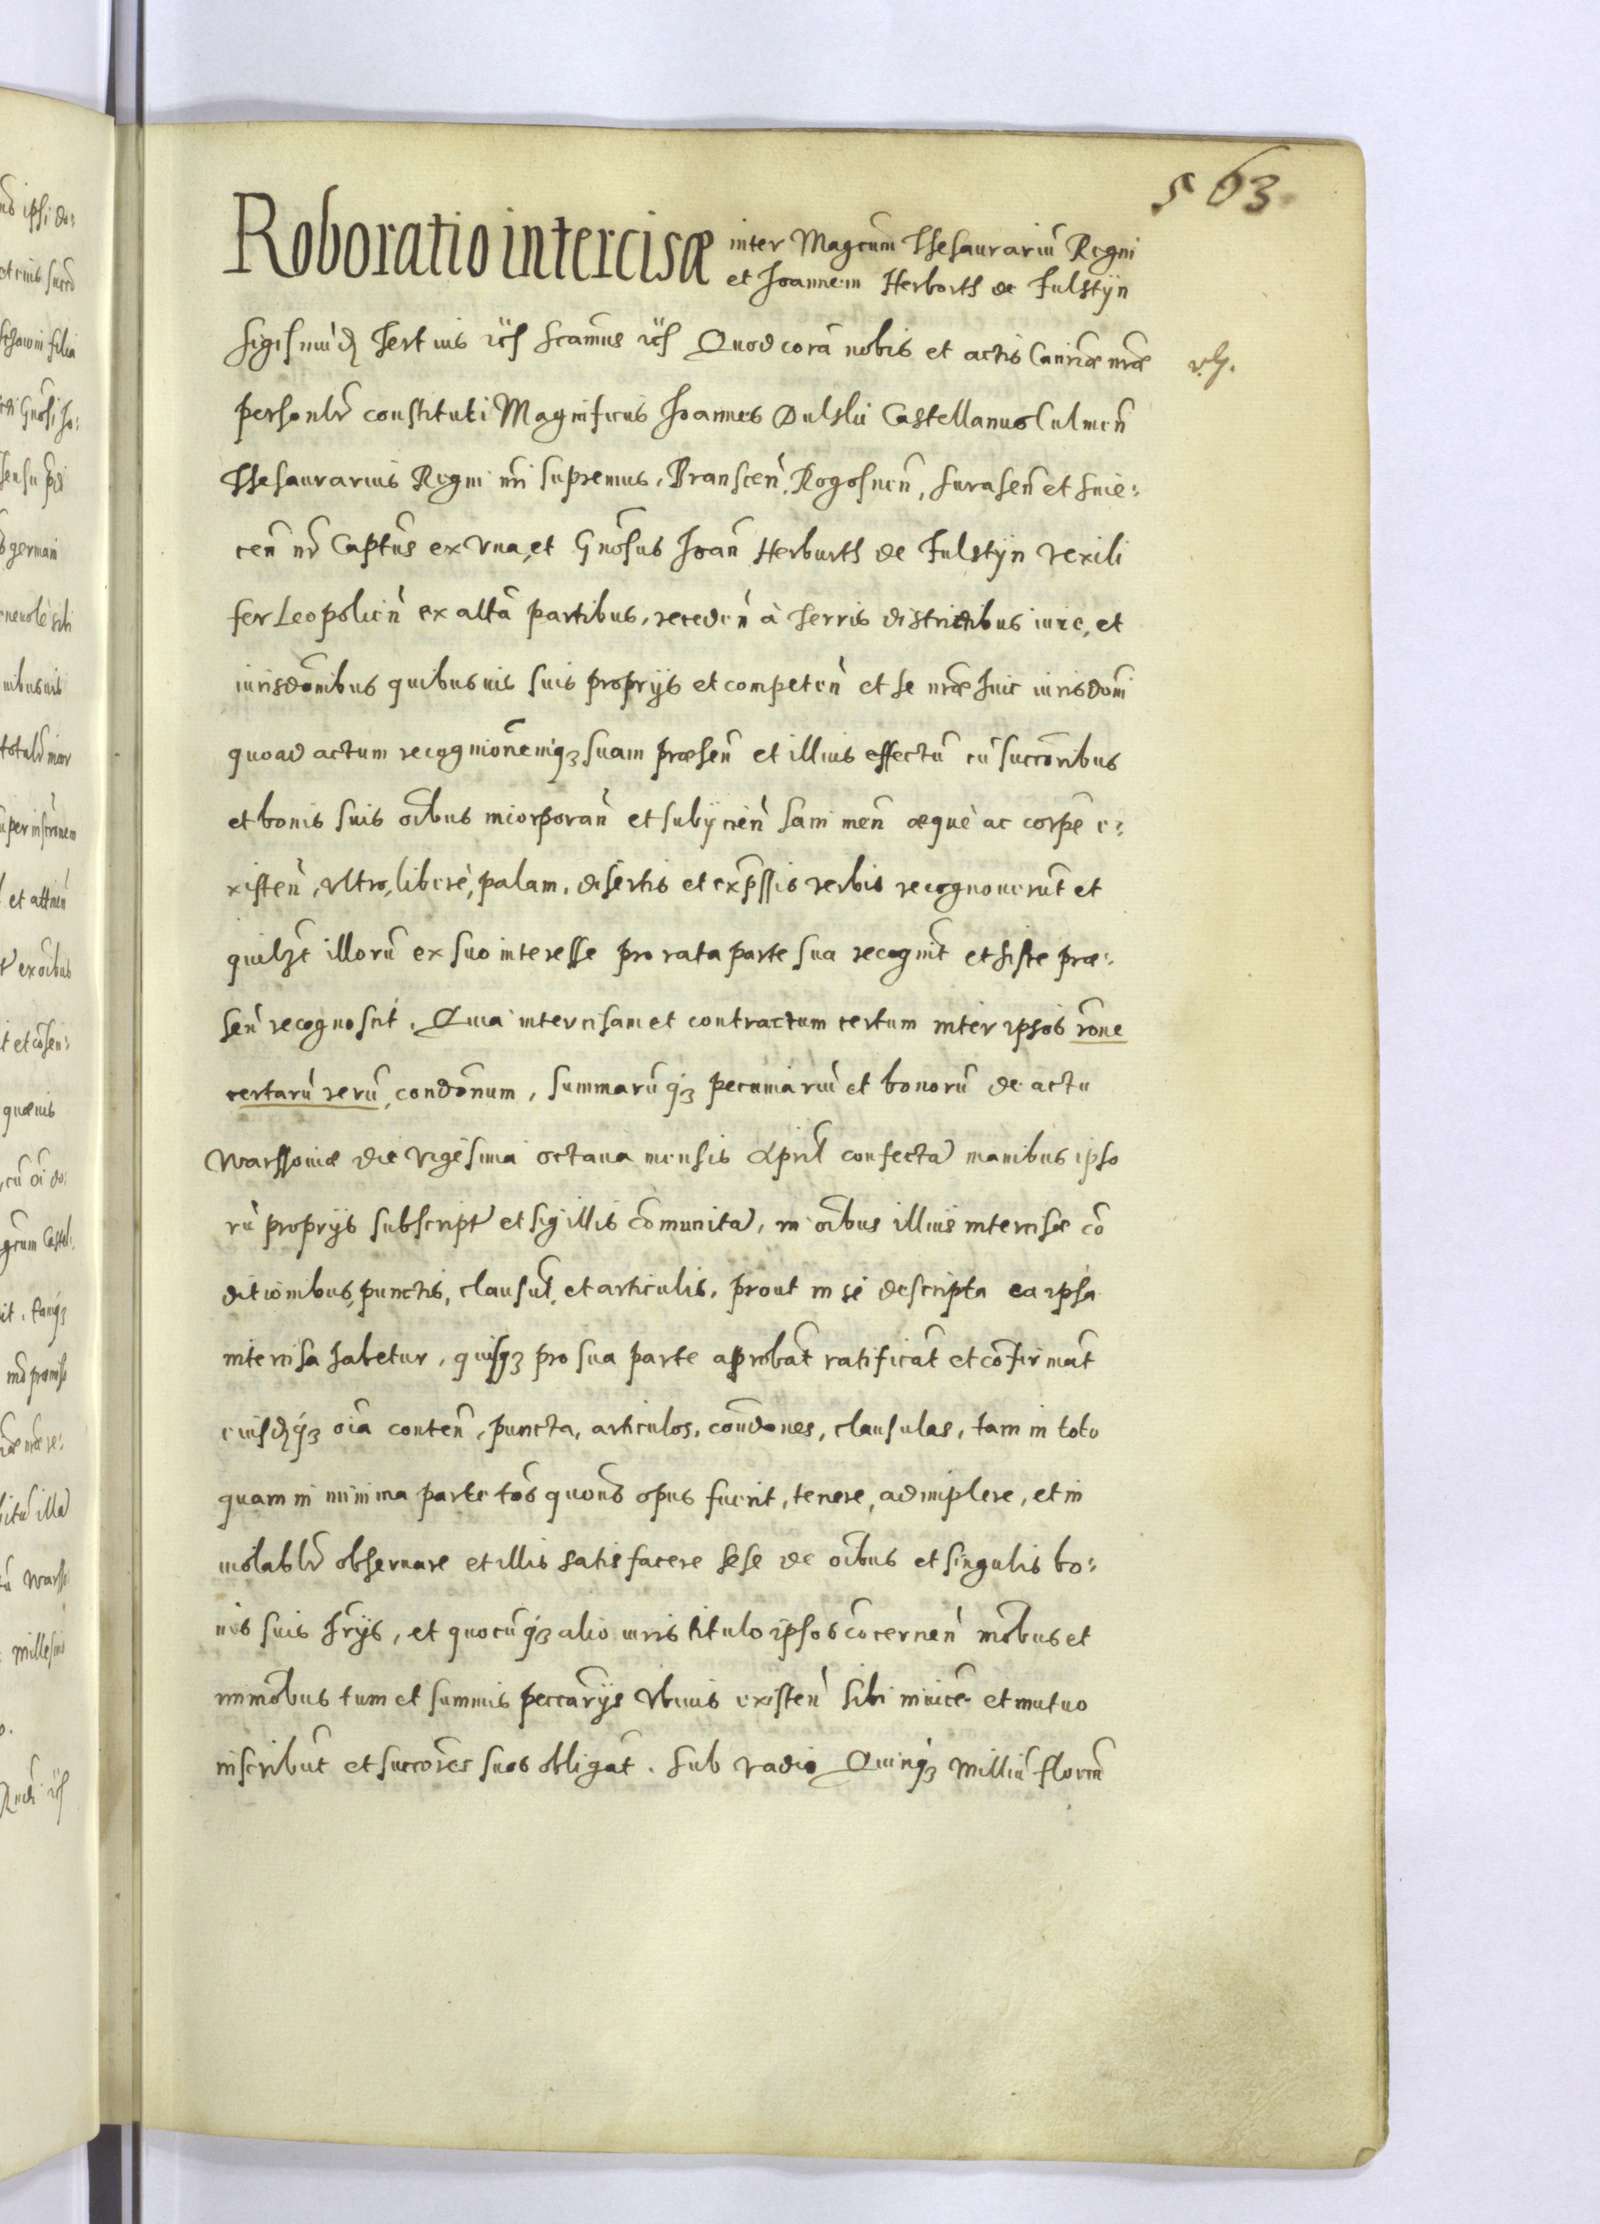 563
Roboratio intercisæ inter Magcum Thesaurariũ Regni
et Joannem Herborth de Fulstÿn
Sigismũdꝰ Tertius etc̃ Scamus etc̃ Quod corã nobis et actis Cancriæ nr̃æ
personlr̃ constituti Magnificus Joannes Dulskii Castellanus Culmeñ
Thesaurarius Regni nr̃i supremus, Branscen̄, Rogosneñ, Suraseñ et Suie⸗
ceñ nr̃ Captũs ex vna, et Gnõsus Joañ Herburth de Fulstÿn vexili
fer Leopolieñ ex altã partibus, recedeñ à terris districtibus iure, et
iurisdõnibus quibusuis suis proprijs et competeñ et se nr̃æ huic iurisdõni
quoad actum recognionẽmqʒ suam præseñ et illius effectũ cũ succõribus
et bonis suis oĩbus incorporañ et subijcieñ sani meñ æquè ac corpẽ e⸗
xisteñ, vltro, liberè, palam, disertis et exp̃ssis verbis recognouerũt et
quilʒt illorũ ex suo interesse pro rata parte sua recognit et hisce præ⸗
señ recognoscit. Quia intercisam et contractum certum inter ipsos rõne
certarũ rerũ, condõnum, summarũqʒ pecuniariũ et bonorũ de actu
Warssouiæ die vigesima octaua mensis April confecta manibus ipso
rũ proprijs subscript et sigillis cõmunita, in oĩbus illius intercisæ cõ
ditionibus, punctis, clausul, et articulis, prout in se descripta ea ipsa
intercisa habetur, quisqʒ pro sua parte aprobãt ratificãt et cõfirmãt
eiusdꝫqʒ oĩa conteñ, puncta, articulos, condõnes, clausulas, tam in toto
quam in minima parte tõs quõns opus fuerit, tenere, adimplere, et in
uiolablr̃ obseruare et illis satisfacere sese de oĩbus et singulis bo⸗
nis suis hr̃ijs, et quocũqʒ alio iuris titulo ipsos cõcerneñ mõbus et
immõbus tum et summis peccãrijs vbiuis existeñ sibi inuicẽ et mutuo
inscribũt et succõres suos obligãt. Sub vadio Quinqʒ Milliũ floreñ